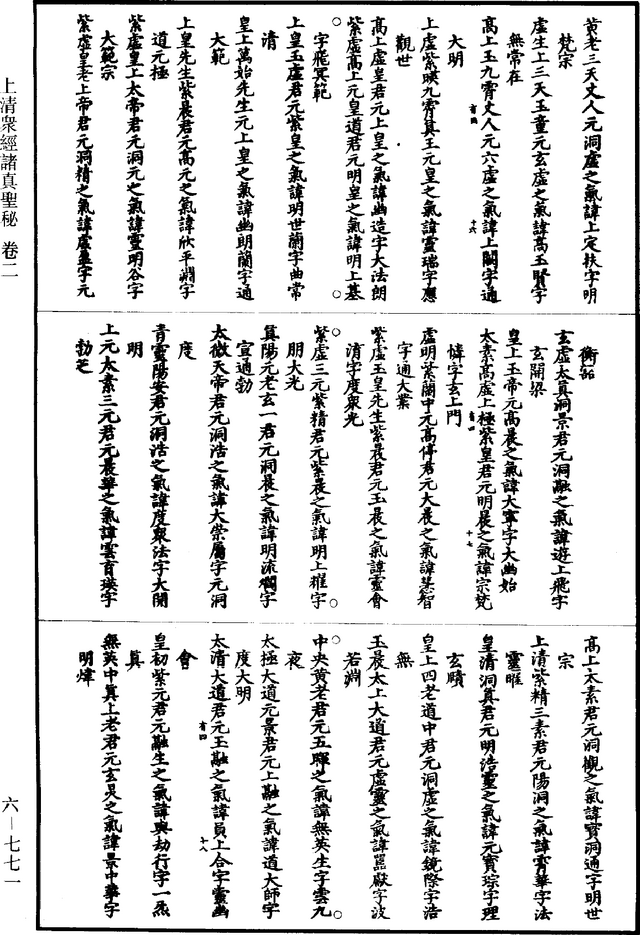 黃老三天丈人元洞虛之氣諱上定扶字明
梵宗
虛生上三天玉童元玄虛之氣諱高玉賢字
無常在
高上玉九霄丈人元六虛之氣諱上閣字通
大明
上虛紫暎九霄真王元皇之氣諱靈瑞字應
觀世
高上虛皇君元上皇之氣諱幽造字大法朗
紫虛高上元皇道君元明皇之氣諱明上基
字飛冥範
上皇玉虛君元紫皇之氣諱明世蘭字曲常
清
皇上萬始先生元上皇之氣諱幽朗蘭字通
大範
上皇先生紫晨君元高元之氣諱欣平澗字
道元極
紫虛皇上太帝君元洞元之氣諱靈明谷字
大範宗
紫虛皇老上帝君元洞精之氣諱虛臺字元
衛詺
玄虛太真洞景君元洞融之氣諱遊上飛字
玄開梁
皇上玉帝元高晨之氣諱大寧字大幽始
太素高虛上極紫皇君元明晨之氣諱宗梵
憐字玄上門
虛明紫蘭中元高停君元大晨之氣諱慧智
字通大業
紫虛玉皇先生紫晨君元玉晨之氣諱靈會
清字度眾光
紫虛三元紫精君元紫晨之氣諱明上禚字
朋大光
真陽元老玄一君元洞晨之氣諱明流爛字
宣通勃
太微天帝君元洞浩之氣諱大崇屬字元洞
度
青靈陽安君元洞浩之氣諱度眾法字大開
明
上元太素三元君元晨華之氣諱雲育瑛字
勃芝
高上太素君元洞觀之氣諱寶洞通字明世
宗
上清紫精三素君元陽洞之氣諱霄華字法
靈暀
皇清洞真君元明浩靈之氣諱元寶琮字理
玄賾
皇上四老道中君元洞虛之氣諱鏡際字浩
無
玉晨太上大道君元虛靈之氣諱嚚獻字波
若淵
中央黃老君元五暉之氣諱無英生字雲九
夜
太極大道元景君元上融之氣諱道大師字
度大明
太清大道君元玉融之氣諱員上合字靈幽
會
皇初紫元君元融生之氣諱與劫行字一炁
真
無英中真上老君元玄昃之氣諱景中華字
明煒
有四
十六
有四
十七
有四
十八
上清眾經諸真聖秘 卷二
六－七七一